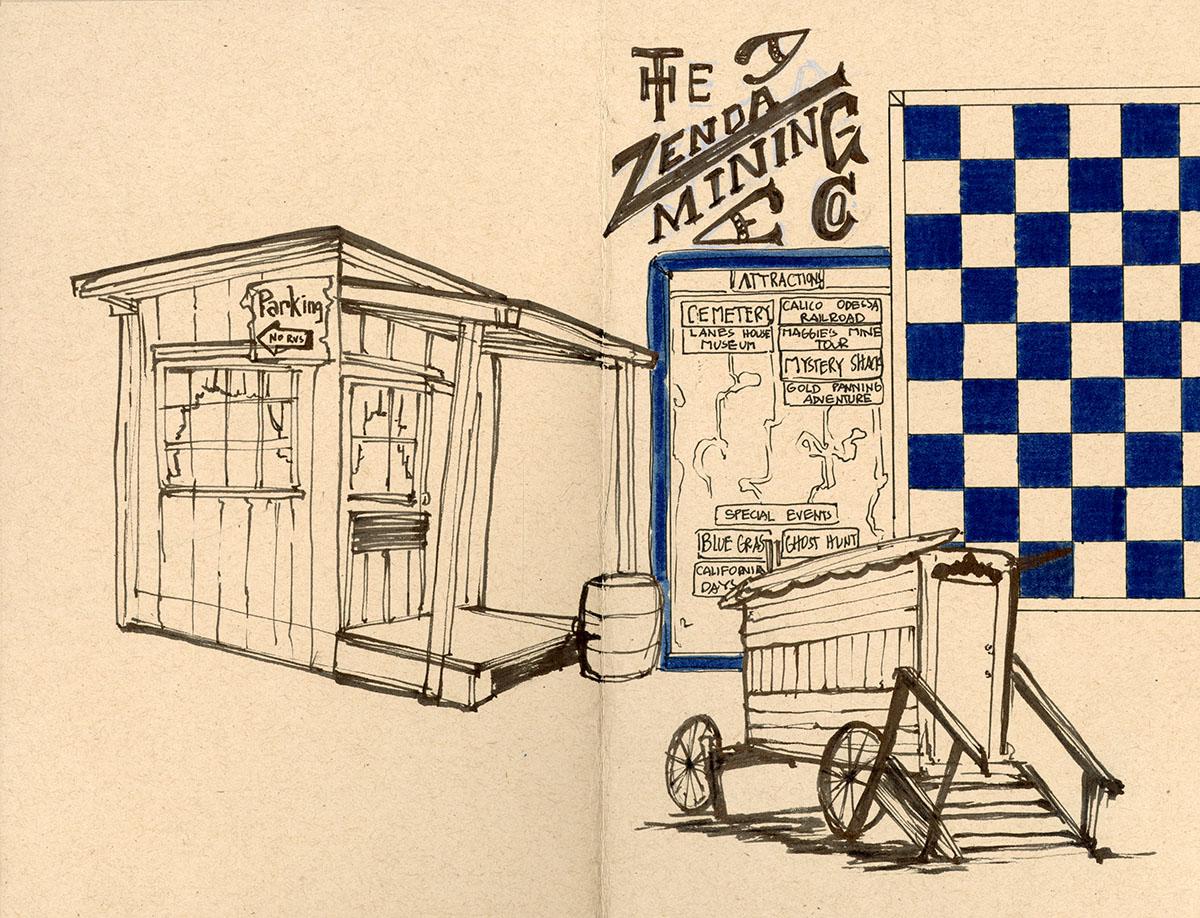 Parking
NO RVS
THE
ZENDA
MINING
CO
ATTRACTIONS
CEMETERY
LANES HOUSE
MUSEUM
CALICO ODESSA
RAILROAD
MAGGIE'S MINE
TOUR
MYSTERY SHACK
GOLD PANNING
ADVENTURE
SPECIAL EVENTS
BLUE GRAS
GHOST HUNT
CALIFORNIA
DAYS